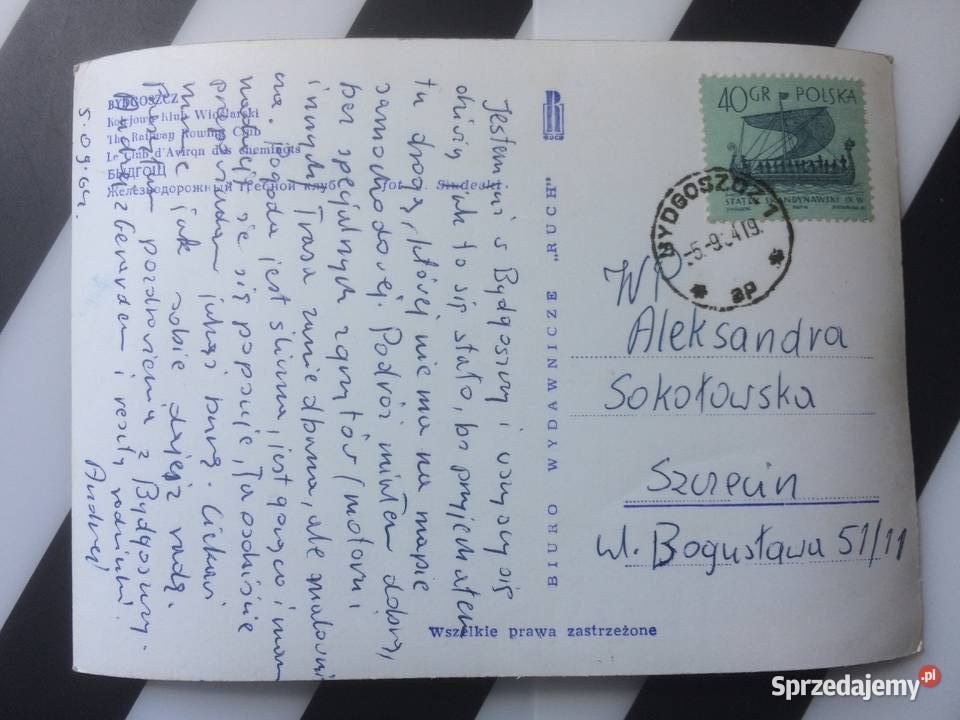 BYDGOSZCZ
Kolejowy Klub Wioślarski
The Railway Rowing Club
Le Club d'Aviron des cheminots
БЫДГОЩ
Железнодорожный гребной клуб
fot. J. Sindecki
5.09.64r.
Jestem już w Bydgoszczy i wszyscy się
dziwią jak to się stało, bo przyjechałem
tu drogą, której nie ma na mapie
samochodowej. Podróż miałem dobrą,
bez specjalnych zgrzytów (motoru i
innych). Trasa zaniedbana, ale malowni
cza. Pogoda jest śliczna, jest gorąco i mam
nadzieję, że się popsuje, Ta osobiście
jakąś burzę. Ciekawi
mnie jak sobie dajesz radę.
pozdrowienia z Bydgoszczy.
i resztą rodzinki
Andrzej
BIURO WYDAWNICZE „RUCH"
RUCH
40 GR POLSKA
STATEK SKANDYNAWSKI IX W
BYDGOSZCZ 1
-5.-9.64.19
ap
WP
Aleksandra
Sokołowska
Szczecin
ul. Bogusława 51/11
Wszelkie prawa zastrzeżone
Sprzedajemy.pl